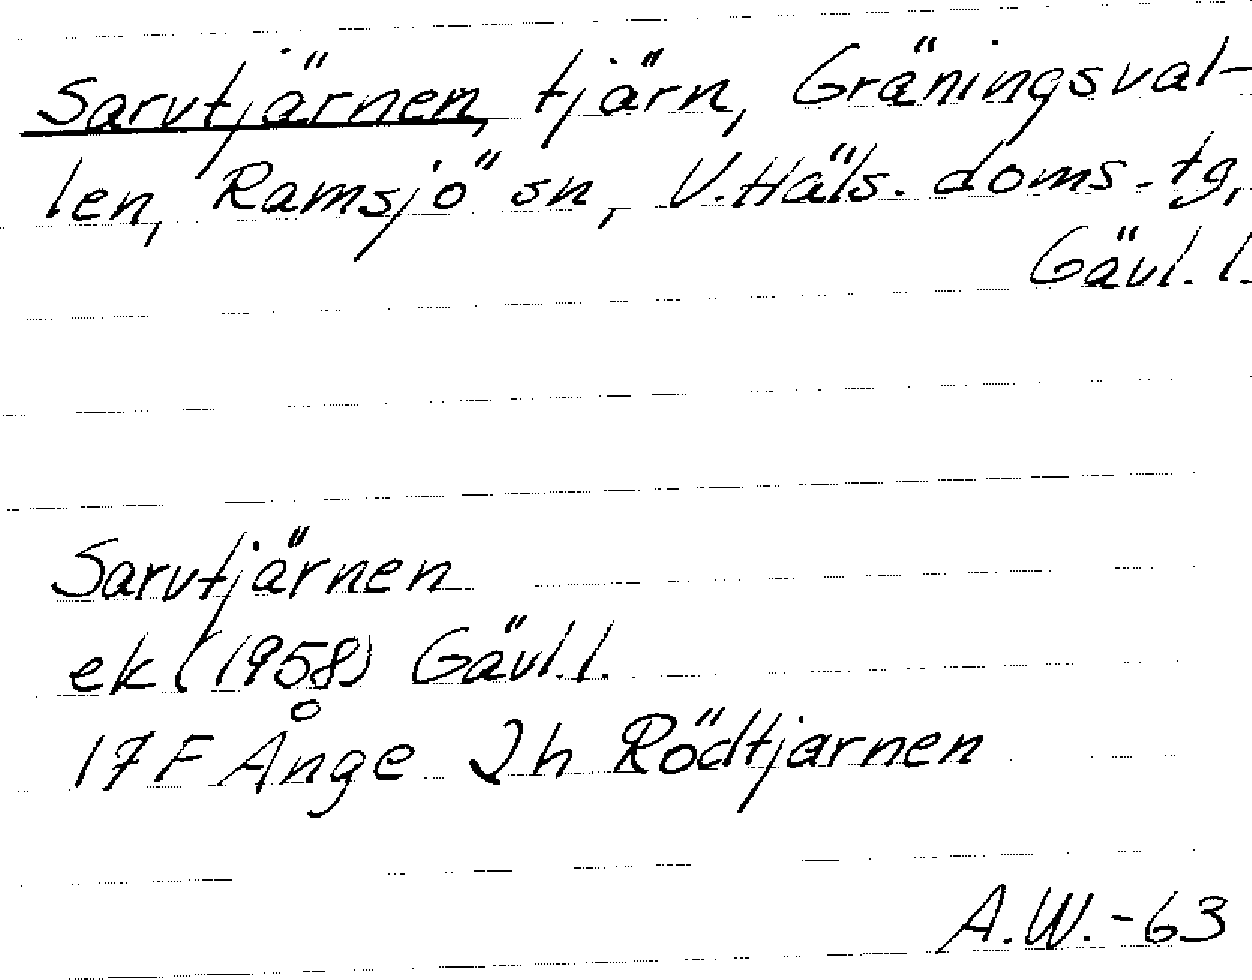 Sarvtjärnen, tjärn, Gräningsval-
len, Ramsjö sn, V. Häls. doms.-tg,
Gävl. l.
Sarvtjärnen
ek (1958) Gävl. l.
17 F Ånge 2h Rödtjarnen
A.W.-63